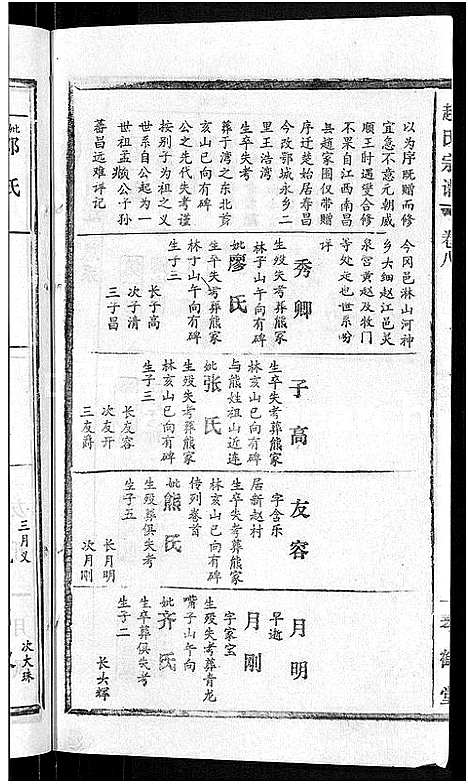 赵氏宗谱
卷八
琴鹤堂
以为序既赠而修
宜急不意元朝威
顺王时遇燮合修
不果自江西南昌
县赵家囤仪带赠
序迁楚始居寿昌
今改鄂城永乡二
里王浩湾
生卒失考
葬于湾之东北首
亥山巳向有碑
公之先代失考谨
按别子为祖之义
世系自公起为一
世祖孟頫公子孙
蕃昌远难详记
今冈邑淋山河神
乡大细赵江邑炅
泉宫黄赵及牧门
等处定也世系吩
详
秀卿
生殁失考葬熊家
林子山午向有碑
妣廖氏
生卒失考葬熊家
林子山午向有碑
生子三
长子高
次子清
三子昌
子高
生卒失考葬熊家
林亥山巳向有碑
与熊姓祖山近连
妣张氏
生殁失考葬熊家
林亥山巳向有碑
生子三
长友容
次友开
三友爵
友容
字含乐
居新赵村
生卒失考葬熊家
林亥山巳向有碑
传列卷首
妣熊氏
生殁葬俱失考
生子五
长月明
次月刚
三月义
月明
早逝
月刚
字家宝
生殁失考葬青龙
嘴子山午向
妣齐氏
生卒葬俱失考
生子二
长大辉
次大珠
妣邹氏